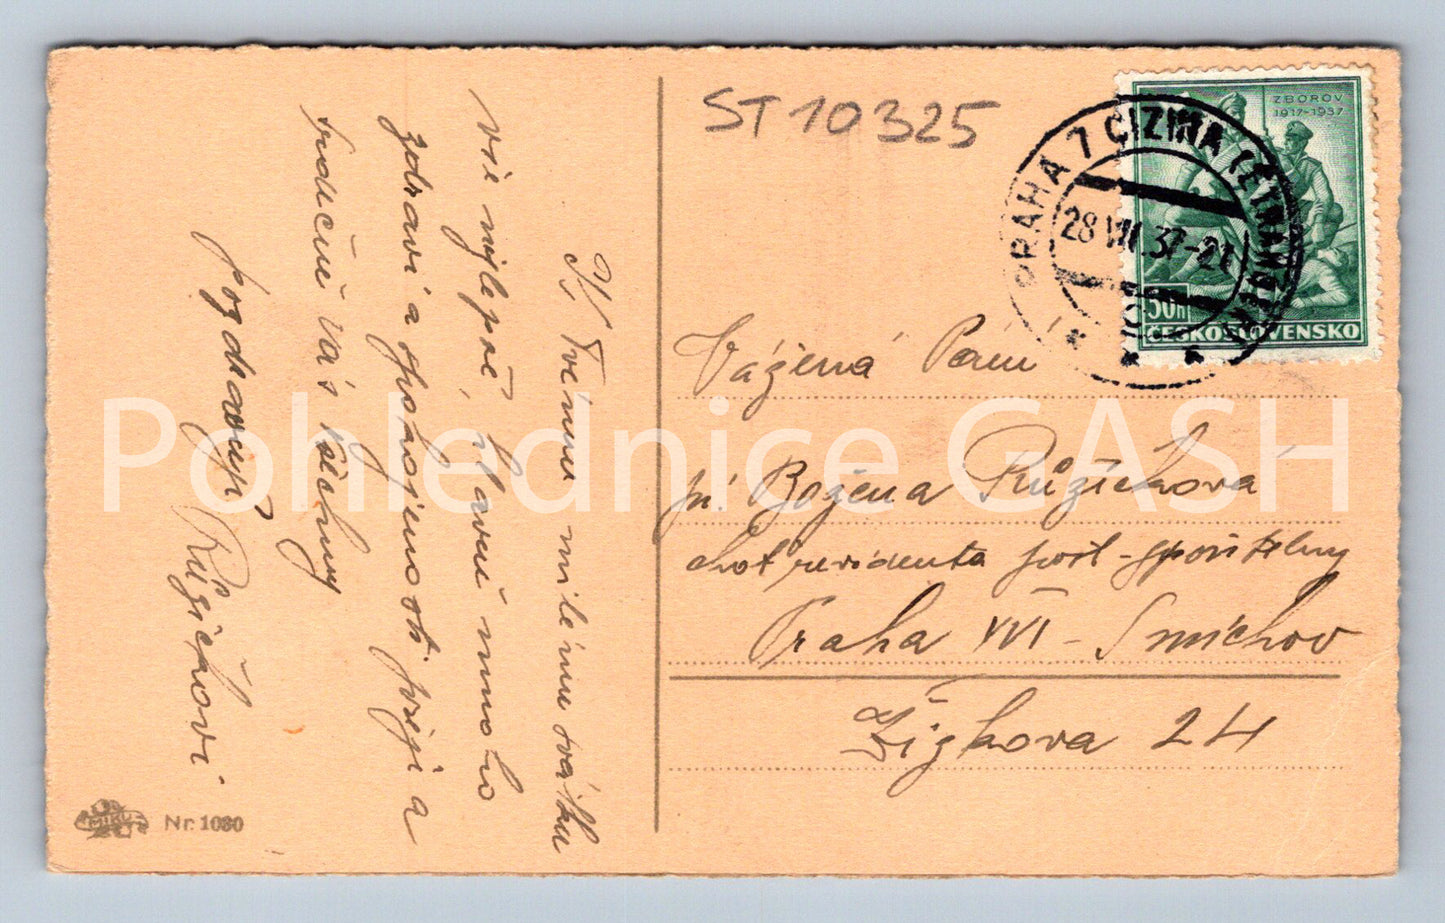 ST 10325
ZBOROV
1917-1937
50h
ČESKOSLOVENSKO
PRAHA 7 CIZINA
28. VII. 37-21
K Tvému milému svátku
vše nejlepší, hlavně mnoho
zdraví a spokojenosti přeji a
srdečně Vás všechny
pozdravuji
Růžičkovi
Vážená Paní
pí. Božena Růžičková
choť revidenta pošt. spořitelny
Praha XVI - Smíchov
Žižkova 24
Nr. 1080
Pohlednice GASH